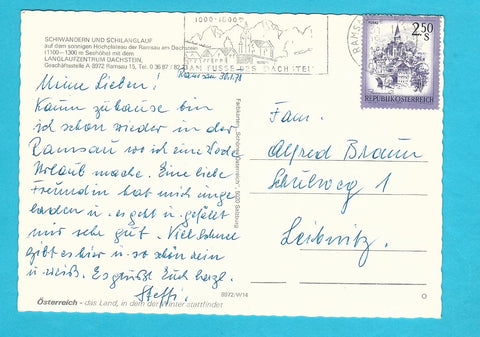 SCHIWANDERN UND SCHILANGLAUF
auf dem sonnigen Hochplateau der Ramsau am Dachstein
(1100–1300 m Seehöhe) mit dem
LANGLAUFZENTRUM DACHSTEIN.
Geschäftsstelle A 8972 Ramsau 15, Tel. 0 36 87 / 82
1000-1600
AM FUSSE DES DACHSTEI
RAMSAU
2.50 S
MURAU
REPUBLIK ÖSTERREICH
Ramsau 30.1.78
Meine Lieben!
Kaum zuhause bin
ich schon wieder in der
Ramsau wo ich eine Woche
Urlaub mache. Eine liebe
Freundin hat mich einge
laden u. es geht u. gefällt
mir sehr gut. Viel Schnee
gibt es hier u. so schön rein
u. weiß. Es grüßt Euch herzl.
Steffi.
Fam.
Alfred Braun
Schulweg 1
Leibnitz.
Österreich - das Land, in dem der Winter stattfindet
8972/W14